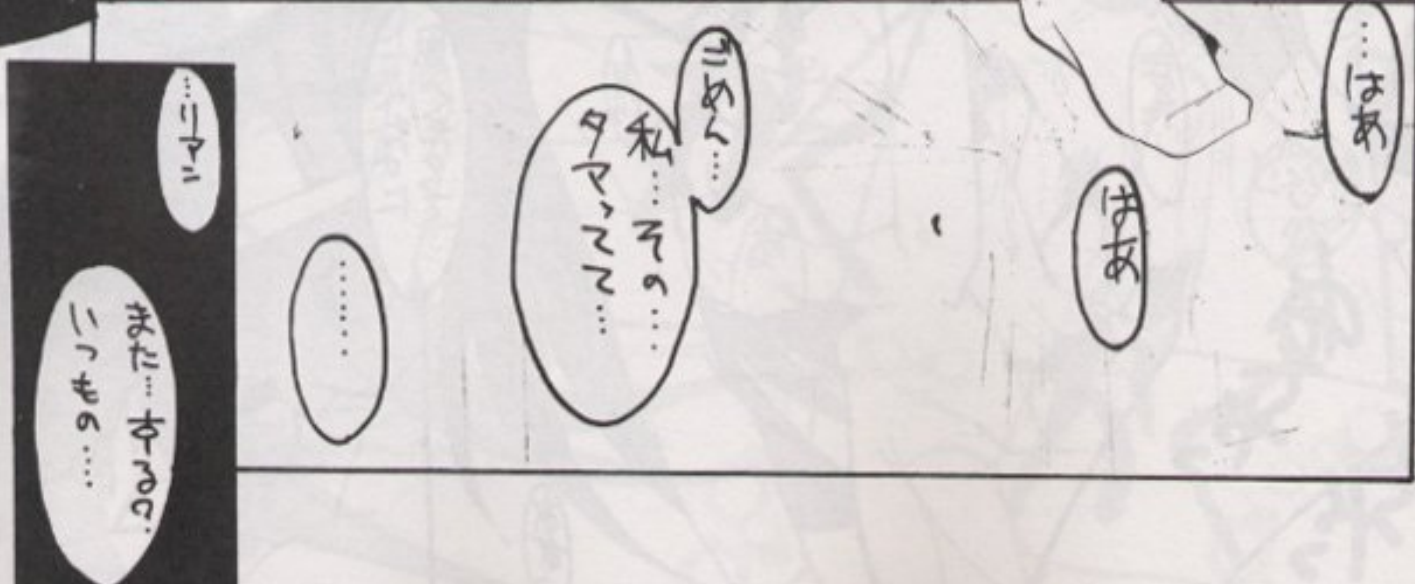 …はあ
はあ
ごめん…
私…その…
タマってて…
……
…リアン
まだ…するの?
いつもの…